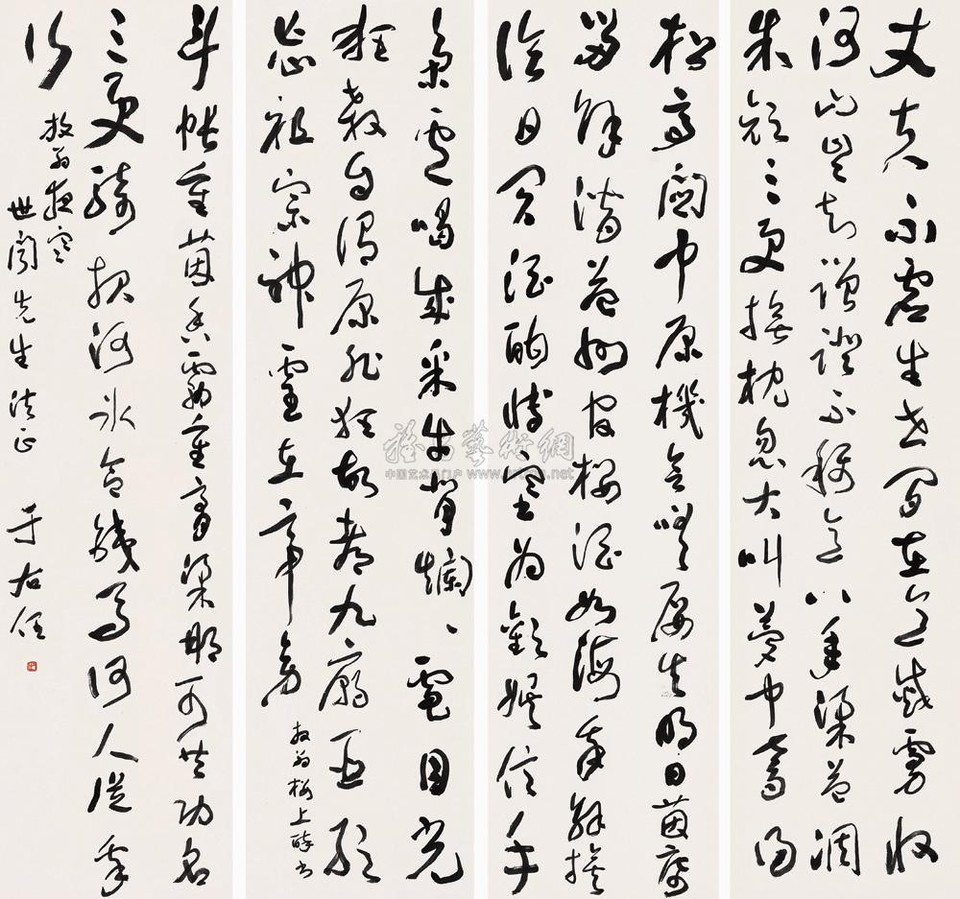 丈夫不虛生世間本意滅虜收
河山豈知蹭蹬不稱意八年梁益凋
朱顏三更撫枕忽大叫夢中奪得
松亭關中原機會嗟屢失明日茵席
留餘潸益州官樓酒如海我來解旗
論日買酒酣博簺為歡娛信手
梟盧喝成采牛背爛、電目光
狂殺自謂原非狂故都九廟臣敢
忘祖宗神靈在帝旁 放翁樓上醉書
斗帳重茵香霧重膏粱那可共功名
三更騎報河冰合鐵馬何人從我
行 放翁夜寒
世閣先生法正 于右任
雅昌藝術網
中国艺术品门户 www.artron.net